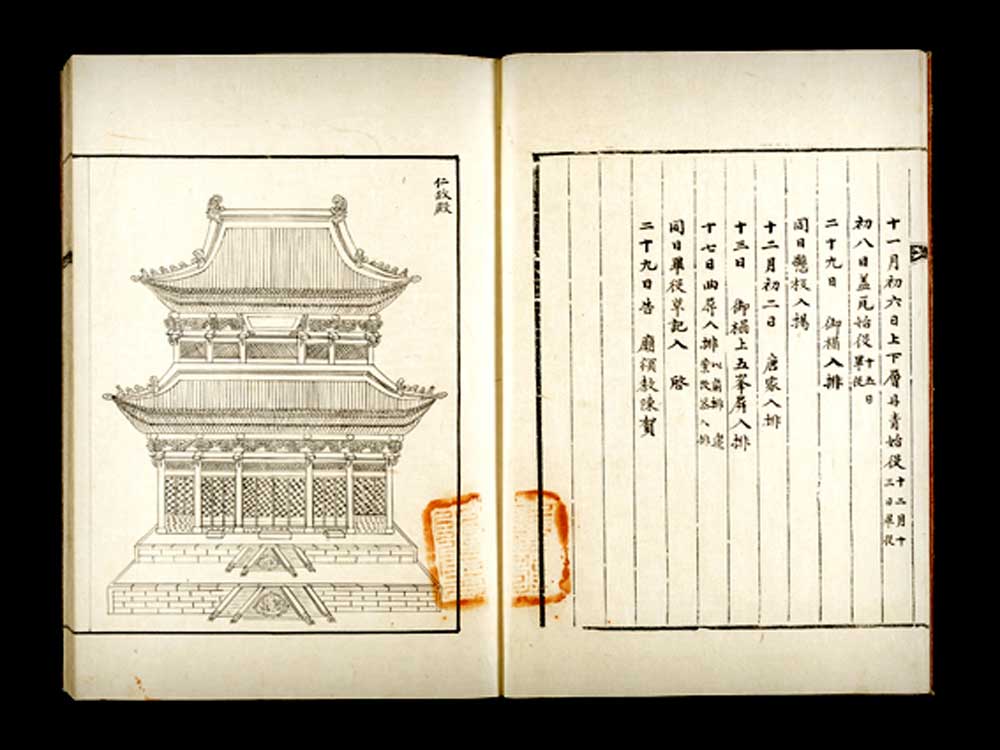 十一月初六日上下層丹青始役 十二月十三日畢役
初八日盖瓦始役 十五日畢役
二十九日 御榻入排
同日懸板入揭
十二月初二日 唐家入排
十三日 御榻上五峯屛入排
十七日曲屛入排 以前排 入排
同日畢役草記入 啓
二十九日告 廟頒敎陳賀
仁政殿